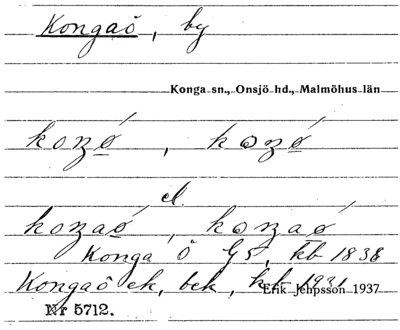 Kongaö, by
Konga sn., Onsjö hd., Malmöhus län
koŋǿ̱, kɷŋǿ̱
el.
koŋaǿ̱, koŋaǿ
Konga Ö G5, kb 1838
Kongaö ek, bek, kb 1931
Erik Jeppsson 1937
Nr 5712.